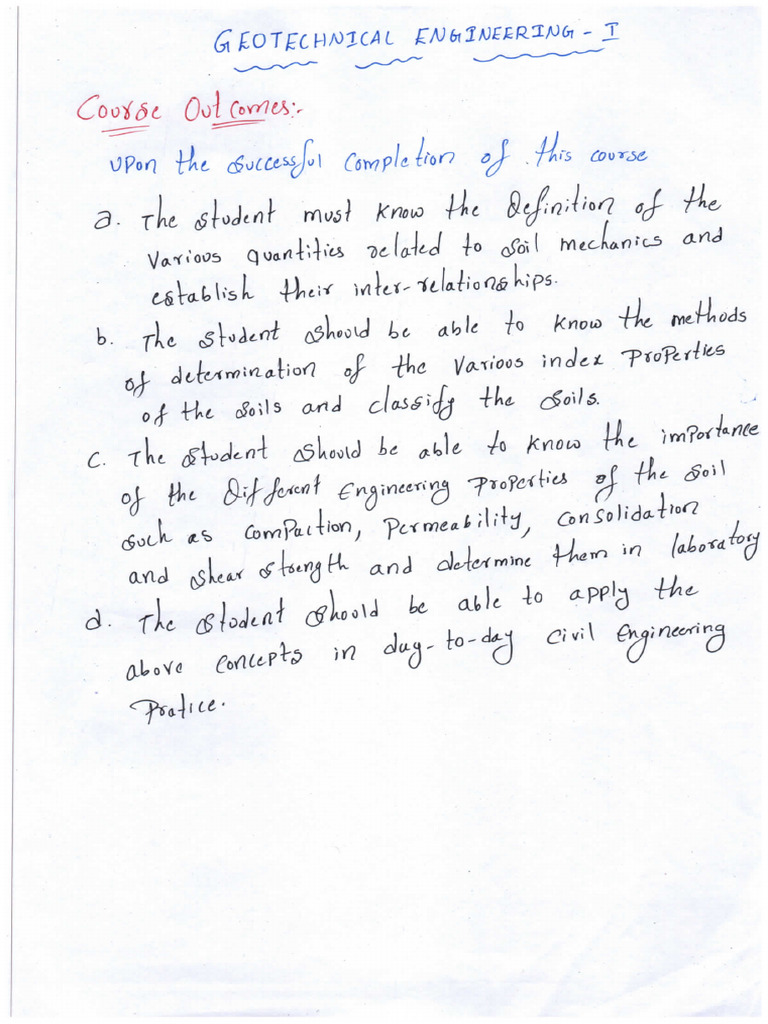 GEOTECHNICAL ENGINEERING - I
Course Outcomes:-
upon the successful completion of this course
a. The student must know the Definition of the
various quantities related to soil mechanics and
establish their inter-relationships.
b. The student should be able to know the methods
of determination of the various index Properties
of the soils and classify the soils.
c. The student should be able to know the importance
of the Different Engineering Properties of the soil
such as compaction, Permeability, consolidation
and shear strength and determine them in laboratory
d. The student should be able to apply the
above concepts in day-to-day civil Engineering
Pratice.